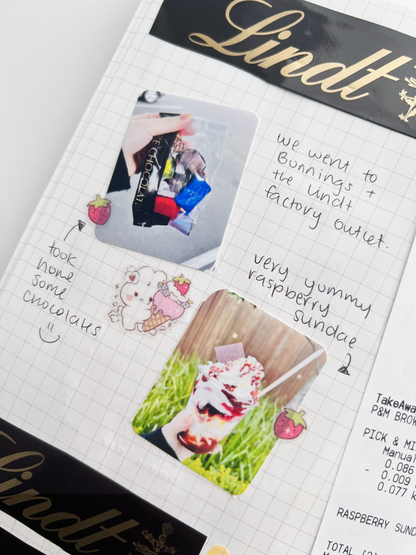 Lindt
we went to
Bunnings +
the Lindt
factory outlet.
F CHOCOLAT
took
home
some
chocolates
very yummy
raspberry
sundae
TakeAwa
P&M BROK
PICK & MI
Manual
0.086
- 0.009
0.077
RASPBERRY SUND
TOTAL
Lindt